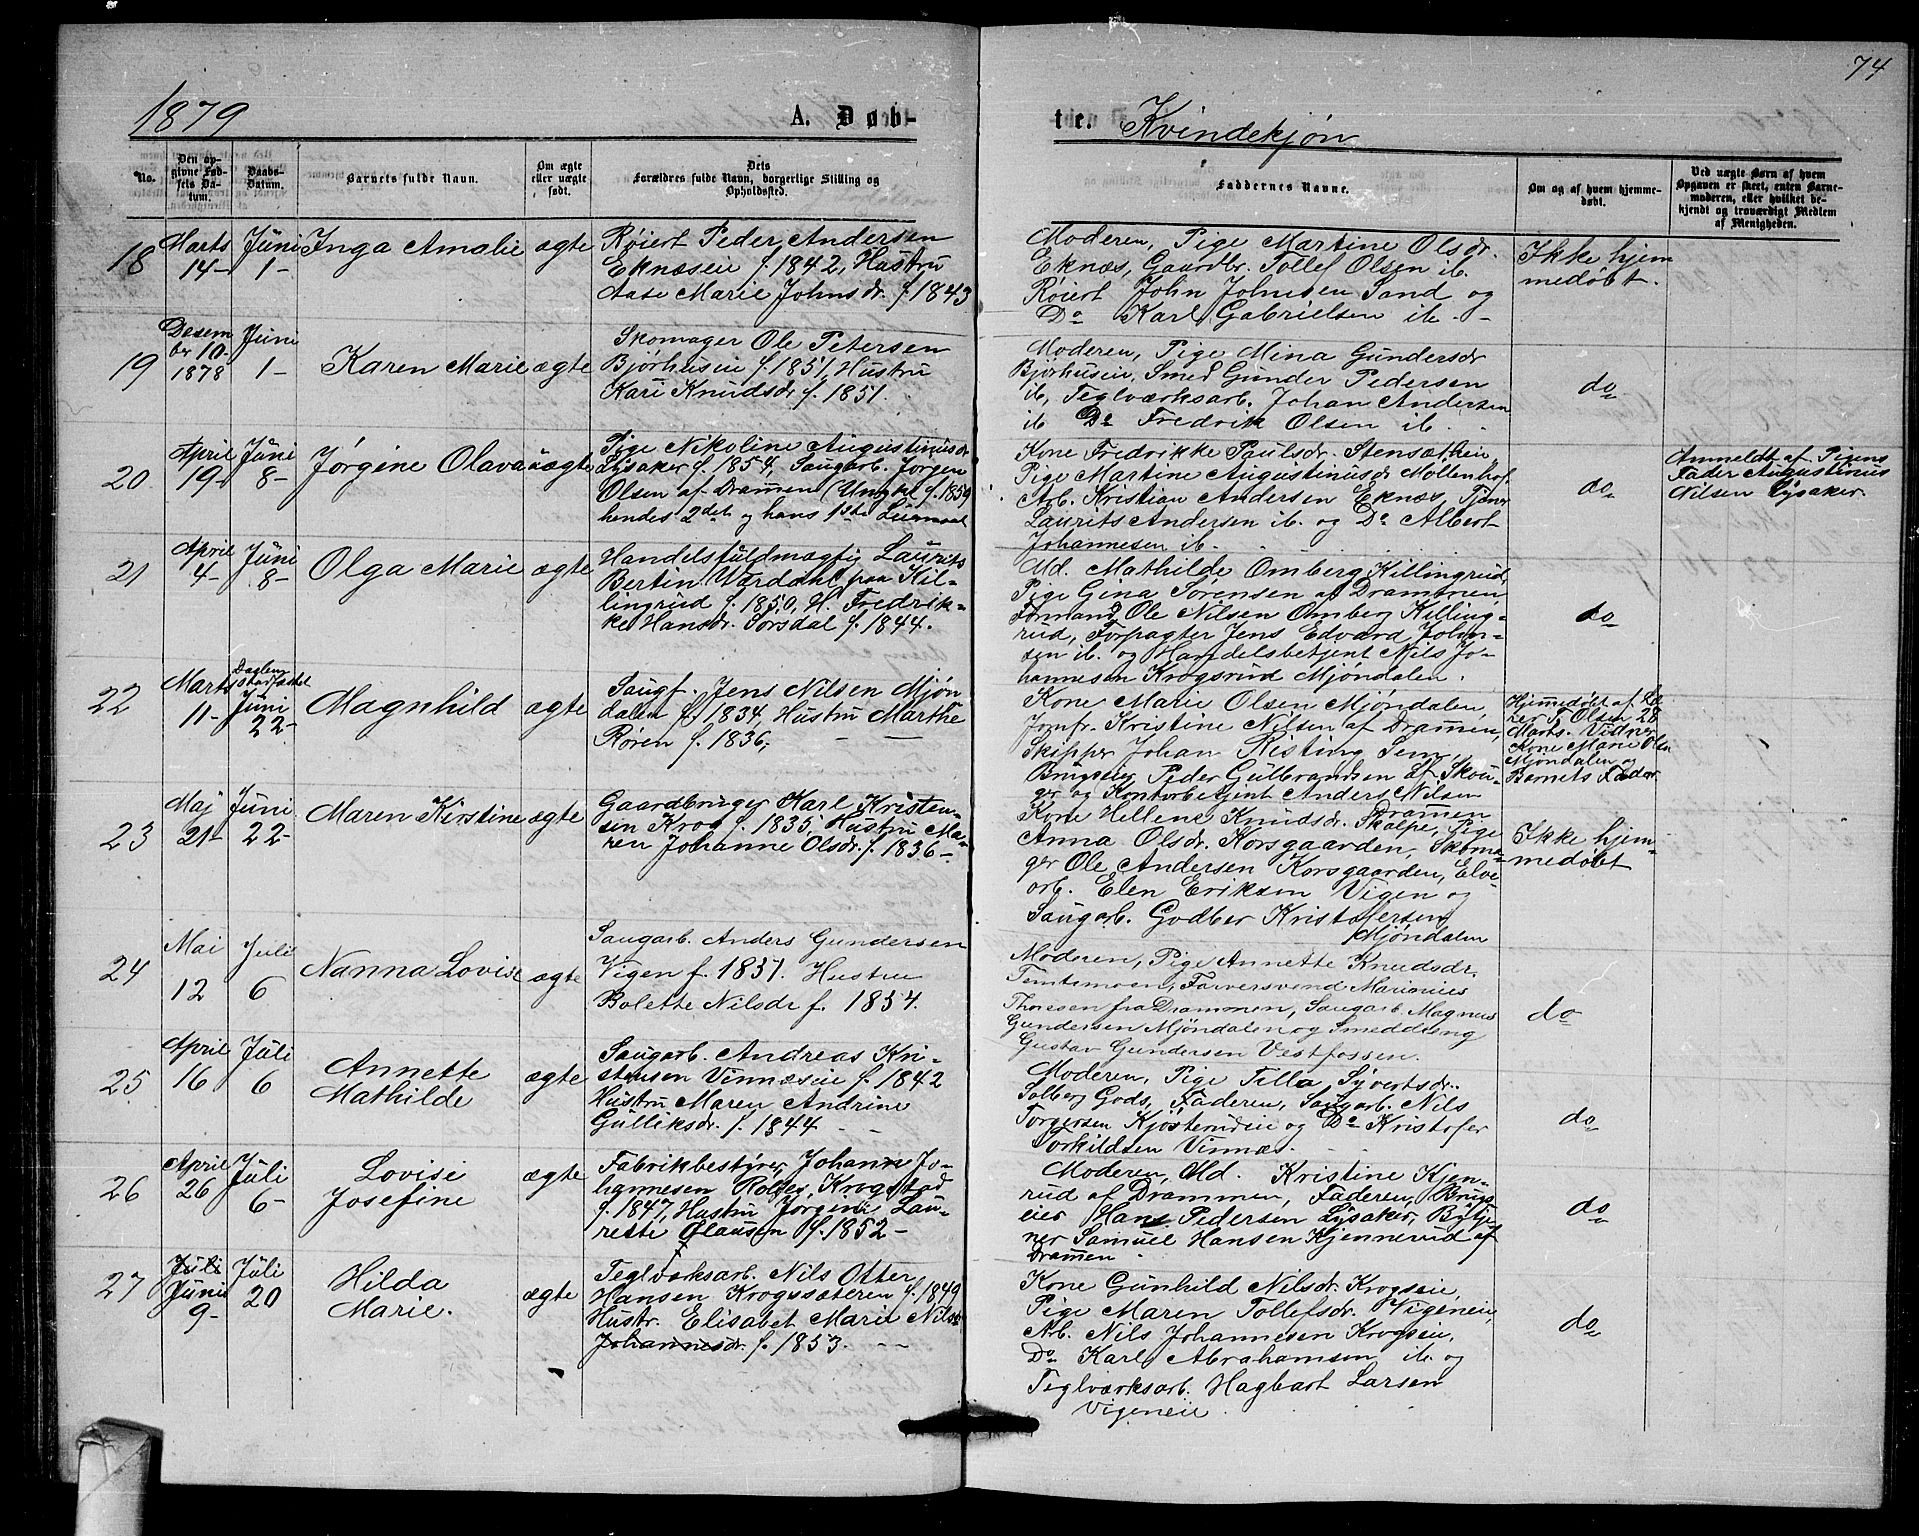 74
1879
A. Døb-
te.
Kvindekjøn
No.
Den op-
givne Fød-
sels Da-
tum.
Daabs-
Datum.
Barnets fulde Navn.
Om ægte
eller uægte
født.
Dets
Forældres fulde Navn, borgerlige Stilling og
Opholdssted.
Faddernes Navne.
Om og af hvem hjemme-
døbt.
Ved uægte Børn af hvem
Opgaven er skeet, enten Barne-
moderen, eller hvilket be-
kjendt og troværdigt Medlem
af Menigheden.
18
Marts
14-
Juni
1-
Inga Amalie
ægte
Røiert Peder Andersen
Eknæseie f. 1842, Hustru
Aase Marie Johnsdr. f. 1843
Moderen, Pige Martine Olsdr.
Eknæs, Gaardbr. Tollef Olsen ib.
Røiert John Johnsen Sand og
Do Karl Gabrielsen ib. -
Ikke hjem
medøbt.
19
Desem
ber 10-
1878
Juni
1-
Karen Marie
ægte
Skomager Ole Petersen
Bjørhuseie f. 1851, Hustru
Kari Knudsdr f. 1851.
Moderen, Pige Mina Gundersdr
Bjørhuseie, Smed Gunder Pedersen
ib, Teglværksarb. Johan Andersen
ib Do Fredrik Olsen ib.
do
20
April
19-
Juni
8-
Jørgine Olava
uægte
Pige Nikoline Augustinusdr
Lysaker f. 1854, Saugarb. Jørgen
Olsen af Drammen (Ungkl f. 1859
hendes 2det og hans 1ste Leiermaal
Kone Fredrikke Paulsdr. Stensætheie
Pige Martine Augustinusdr Moltenhof
Arb. Kristian Andersen Eknæs, Tjener
Laurits Andersen ib. og Do Albert
Johannesen ib.
do
Anmeldt af Pigens
Fader Augustinus
Nilsen Lysaker.
21
April
4-
Juni
8-
Olga Marie
ægte
Handelsfuldmægtig Laurits
Bertin Værdahl paa Kil-
lingrud f. 1850, H. Fredrik-
ke Hansdr. Sorsdal f. 1844.
Md. Mathilde Omberg Killingrud,
Pige Gina Sørensen af Drammen
Formand Ole Nilsen Omberg Killing-
rud, Forpagter Jens Edvard John-
sen ib. og Handelsbetjent Nils Jo-
hannesen Krogsrud Mjøndalen.
do
22
Marts
11-
Daaben
stadfæstet
Juni
22-
Magnhild
ægte
Saugf. Jens Nilsen Mjøn
dalen f. 1834, Hustru Marthe
Røren f. 1836,
Kone Marie Olsen Mjøndalen,
Jomfr. Kristine Nilsen af Drammen,
Skipper Johan Risting Sem,
Brugseier Peder Gulbrandsen Lf Skou-
ger og Kontorbetjent Anders Nilsen
Drammen
Hjemmedøbt af Læ
rer T. Olsen 28
Marts. Vidner
Kone Marie Olsen
Mjøndalen og
Barnets Fader
23
Maj
21-
Juni
22-
Maren Kirstine
ægte
Gaardbruger Karl Kristen-
sen Krog f. 1835, Hustru Ma-
ren Johanne Olsdr. f. 1836-
Kone Hellene Knudsdr. Skalpe, Pige
Anna Olsdr. Korsgaarden, Skoma-
ger Ole Andersen Korsgaarden, Elve-
arb. Elen Eriksen Vigen og
Saugarb. Godber Kristofersen
Mjøndalen
Ikke hjem-
medøbt
24
Mai
12
Juli
6
Nanna Lovise
ægte
Saugarb. Anders Gundersen
Vigen f. 1851. Hustru
Bolette Nilsdr f. 1854.
Moderen, Pige Annette Knudsdr.
Temtemoen, Farversvend Marinius
Thoresen fra Drammen, Saugarb. Magnus
Gundersen Mjøndalen og Smeddreng
Gustav Gundersen Vestfossen.
do
25
April
16
Juli
6
Annette
Mathilde
ægte
Saugarb. Andreas Kri-
stensen Vinnæseie f. 1842
Hustru Maren Andrine
Gulliksdr. f. 1844
Moderen, Pige Tilla Syvertsdr.
Solberg Gods, Faderen, Saugarb. Nils
Torgersen Kjøsterudeie og Do Kristofer
Torkildsen Vinnæs.
do
26
April
26
Juli
6-
Lovise
Josefine
ægte
Fabrikbestyrer Johann Jo-
hannesen Rolfes, Krogstad
f. 1847, Hustru Jørgine Lau-
rette Clausen f. 1852-
Moderen, Md. Kristine Kjen-
rud af Drammen, Faderen, Brugs
eier Hans Pedersen Lysaker,
ner Samuel Hansen Kjennerud af
Drammen
do
27
Juli
Juni
9-
Juli
20
Hilda
Marie.
ægte
Teglværksarb. Nils Otter
Hansen Krogssæteren f. 1849
Hustr. Elisabet Marie Nils
Johannesdr. f. 1853.
Kone Gunhild Nilsdr. Krogseie,
Pige Maren Tollefsdr. Vigeneie,
Arb. Nils Johannesen Krogseie,
Do Karl Abrahamsen ib. og
Teglværksarb. Hagbart Larsen
Vigeneie
do